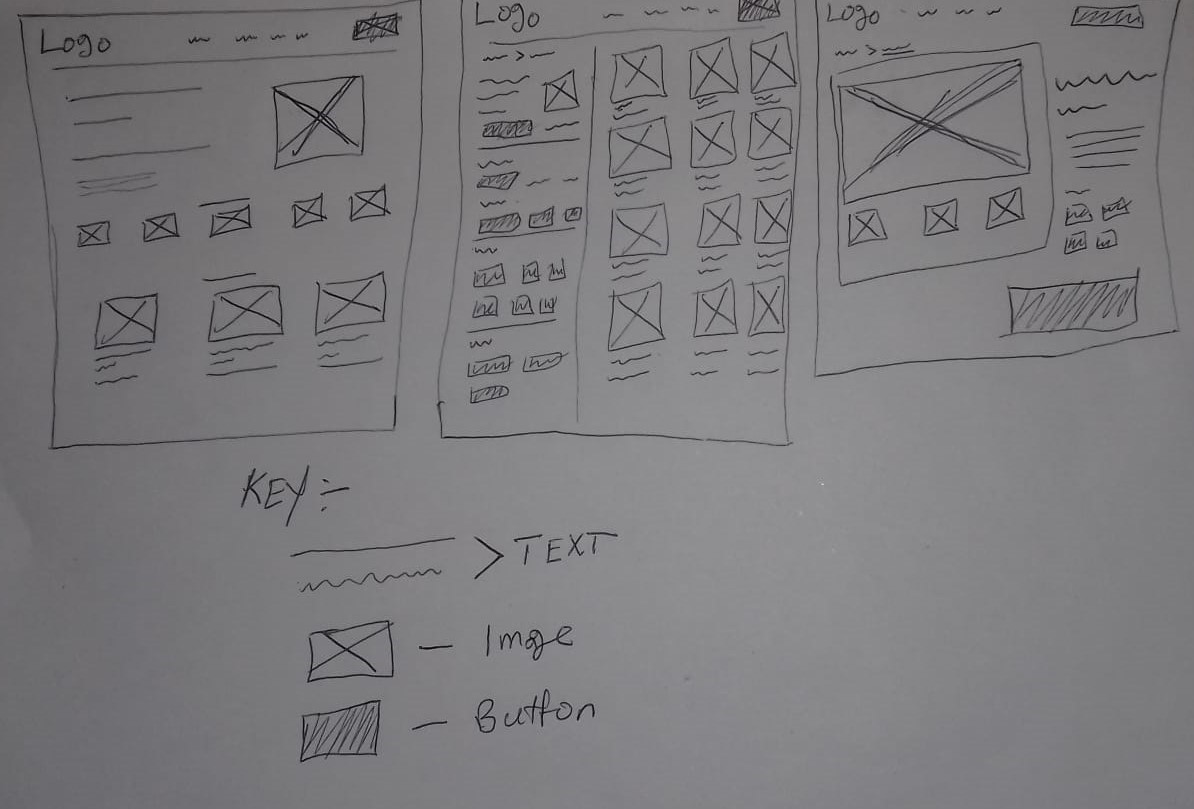 Logo
Logo
Logo
KEY :-
> TEXT
- Image
- Button